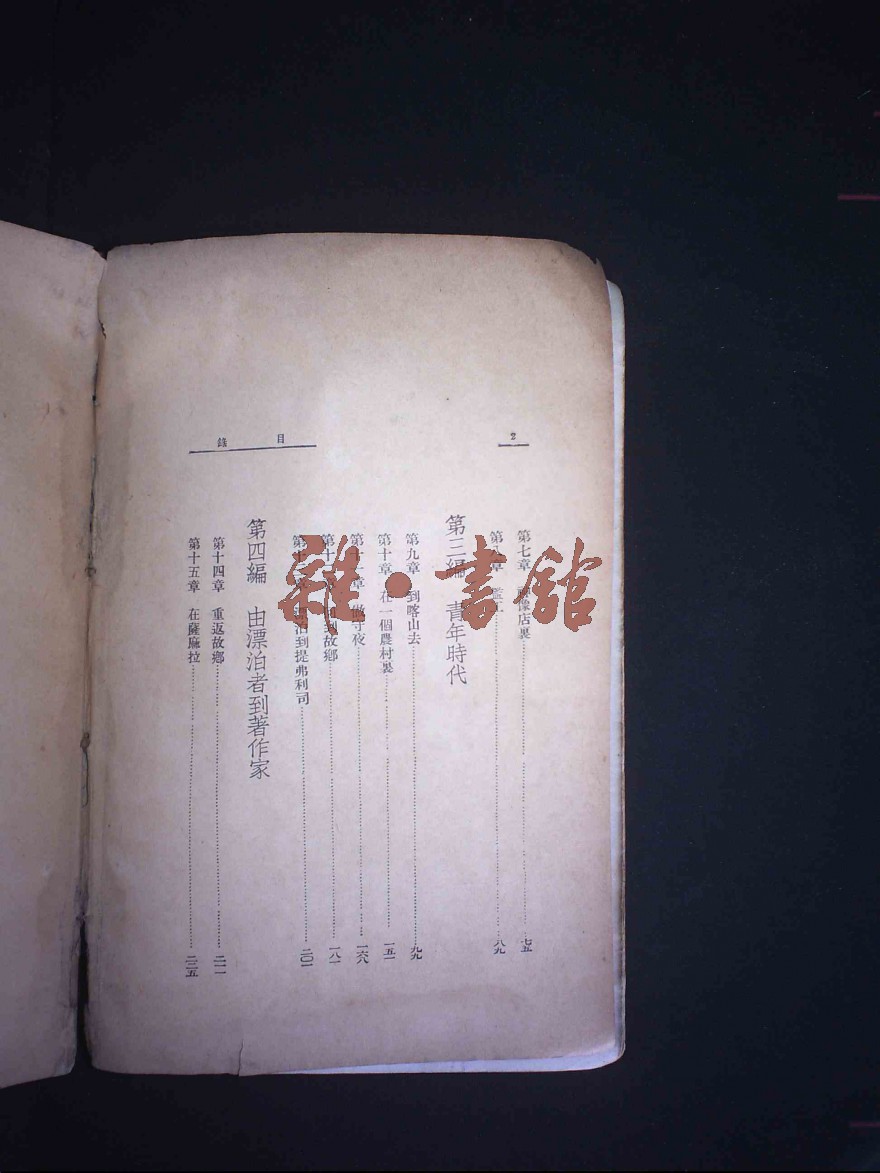 2
目錄
第七章 像店裏……七五
第八章 監工……八九
第三編 青年時代
第九章 到喀山去……九九
第十章 在一個農村裏……一五一
第十 章 做守夜……一六八
第十 章 回到故鄉……一八一
第十 章 泊到提弗利司……二〇一
第四編 由漂泊者到著作家
第十四章 重返故鄉……二一一
第十五章 在薩麻拉……二二五
雜·書館